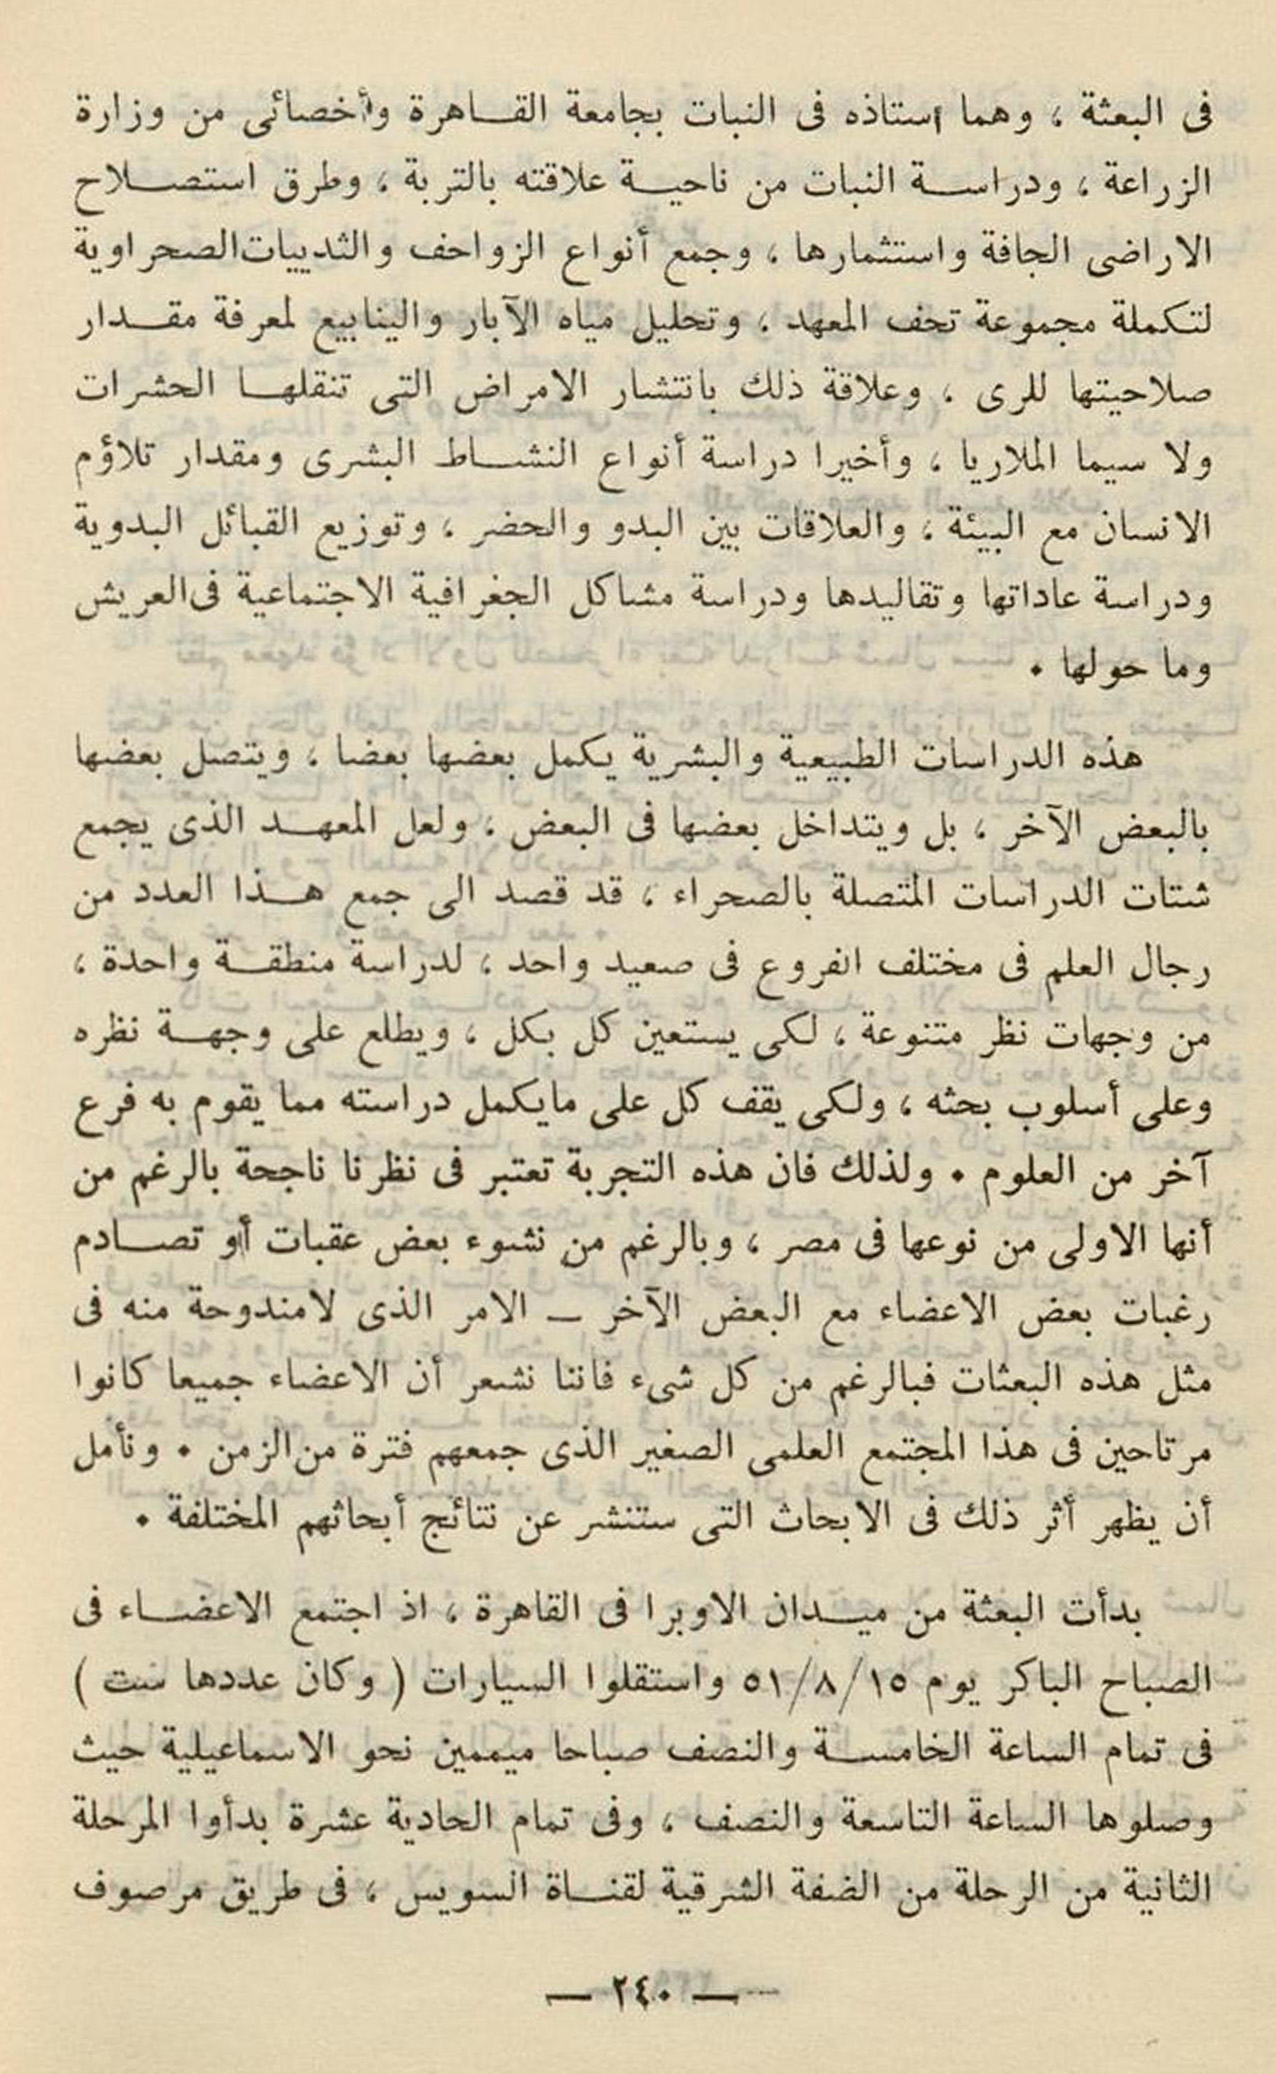 فى البعثة ، وهما استاذه فى النبات بجامعة القاهرة وأخصائى من وزارة
الزراعة ، ودراسة النبات من ناحية علاقته بالتربة ، وطرق استصلاح
الاراضى الجافة واستثمارها ، وجمع أنواع الزواحف والثدييات الصحراوية
لتكملة مجموعة تحف المعهد ، وتحليل مياه الآبار والينابيع لمعرفة مقدار
صلاحيتها للرى ، وعلاقة ذلك بانتشار الامراض التى تنقلها الحشرات
ولا سيما الملاريا ، وأخيرا دراسة أنواع النشاط البشرى ومقدار تلاؤم
الانسان مع البيئة ، والعلاقات بين البدو والحضر ، وتوزيع القبائل البدوية
ودراسة عاداتها وتقاليدها ودراسة مشاكل الجغرافية الاجتماعية فى العريش
وما حولها •
هذه الدراسات الطبيعية والبشرية يكمل بعضها بعضا ، ويتصل بعضها
بالبعض الآخر ، بل ويتداخل بعضها فى البعض ، ولعل المعهد الذى يجمع
شتات الدراسات المتصلة بالصحراء ، قد قصد الى جمع هذا العدد من
رجال العلم فى مختلف الفروع فى صعيد واحد ، لدراسة منطقة واحدة ،
من وجهات نظر متنوعة ، لكى يستعين كل بكل ، ويطلع على وجهة نظره
وعلى أسلوب بحثه ، ولكى يقف كل على مايكمل دراسته مما يقوم به فرع
آخر من العلوم • ولذلك فان هذه التجربة تعتبر فى نظرنا ناجحة بالرغم من
أنها الاولى من نوعها فى مصر ، وبالرغم من نشوء بعض عقبات أو تصادم
رغبات بعض الاعضاء مع البعض الآخر ـ الامر الذى لامندوحة منه فى
مثل هذه البعثات فبالرغم من كل شىء فاننا نشعر أن الاعضاء جميعا كانوا
مرتاحين فى هذا المجتمع العلمى الصغير الذى جمعهم فترة من الزمن • ونأمل
أن يظهر أثر ذلك فى الابحاث التى ستنشر عن نتائج أبحاثهم المختلفة •
بدأت البعثة من ميدان الاوبرا فى القاهرة ، اذ اجتمع الاعضاء فى
الصباح الباكر يوم ٥١/٨/١٥ واستقلوا السيارات ( وكان عددها ست )
فى تمام الساعة الخامسة والنصف صباحا ميممين نحو الاسماعيلية حيث
وصلوها الساعة التاسعة والنصف ، وفى تمام الحادية عشرة بدأوا المرحلة
الثانية من الرحلة من الضفة الشرقية لقناة السويس ، فى طريق مرصوف
— ٢٤٠ —